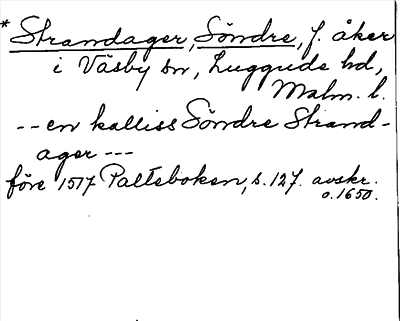 * Strandager, Söndre, f. åker
i Väsby sn, Luggude hd,
Malm. l.
-- en kalliss Söndre Strand-
ager ---
före 1517 Paltsboken, s. 127. avskr.
o. 1650.